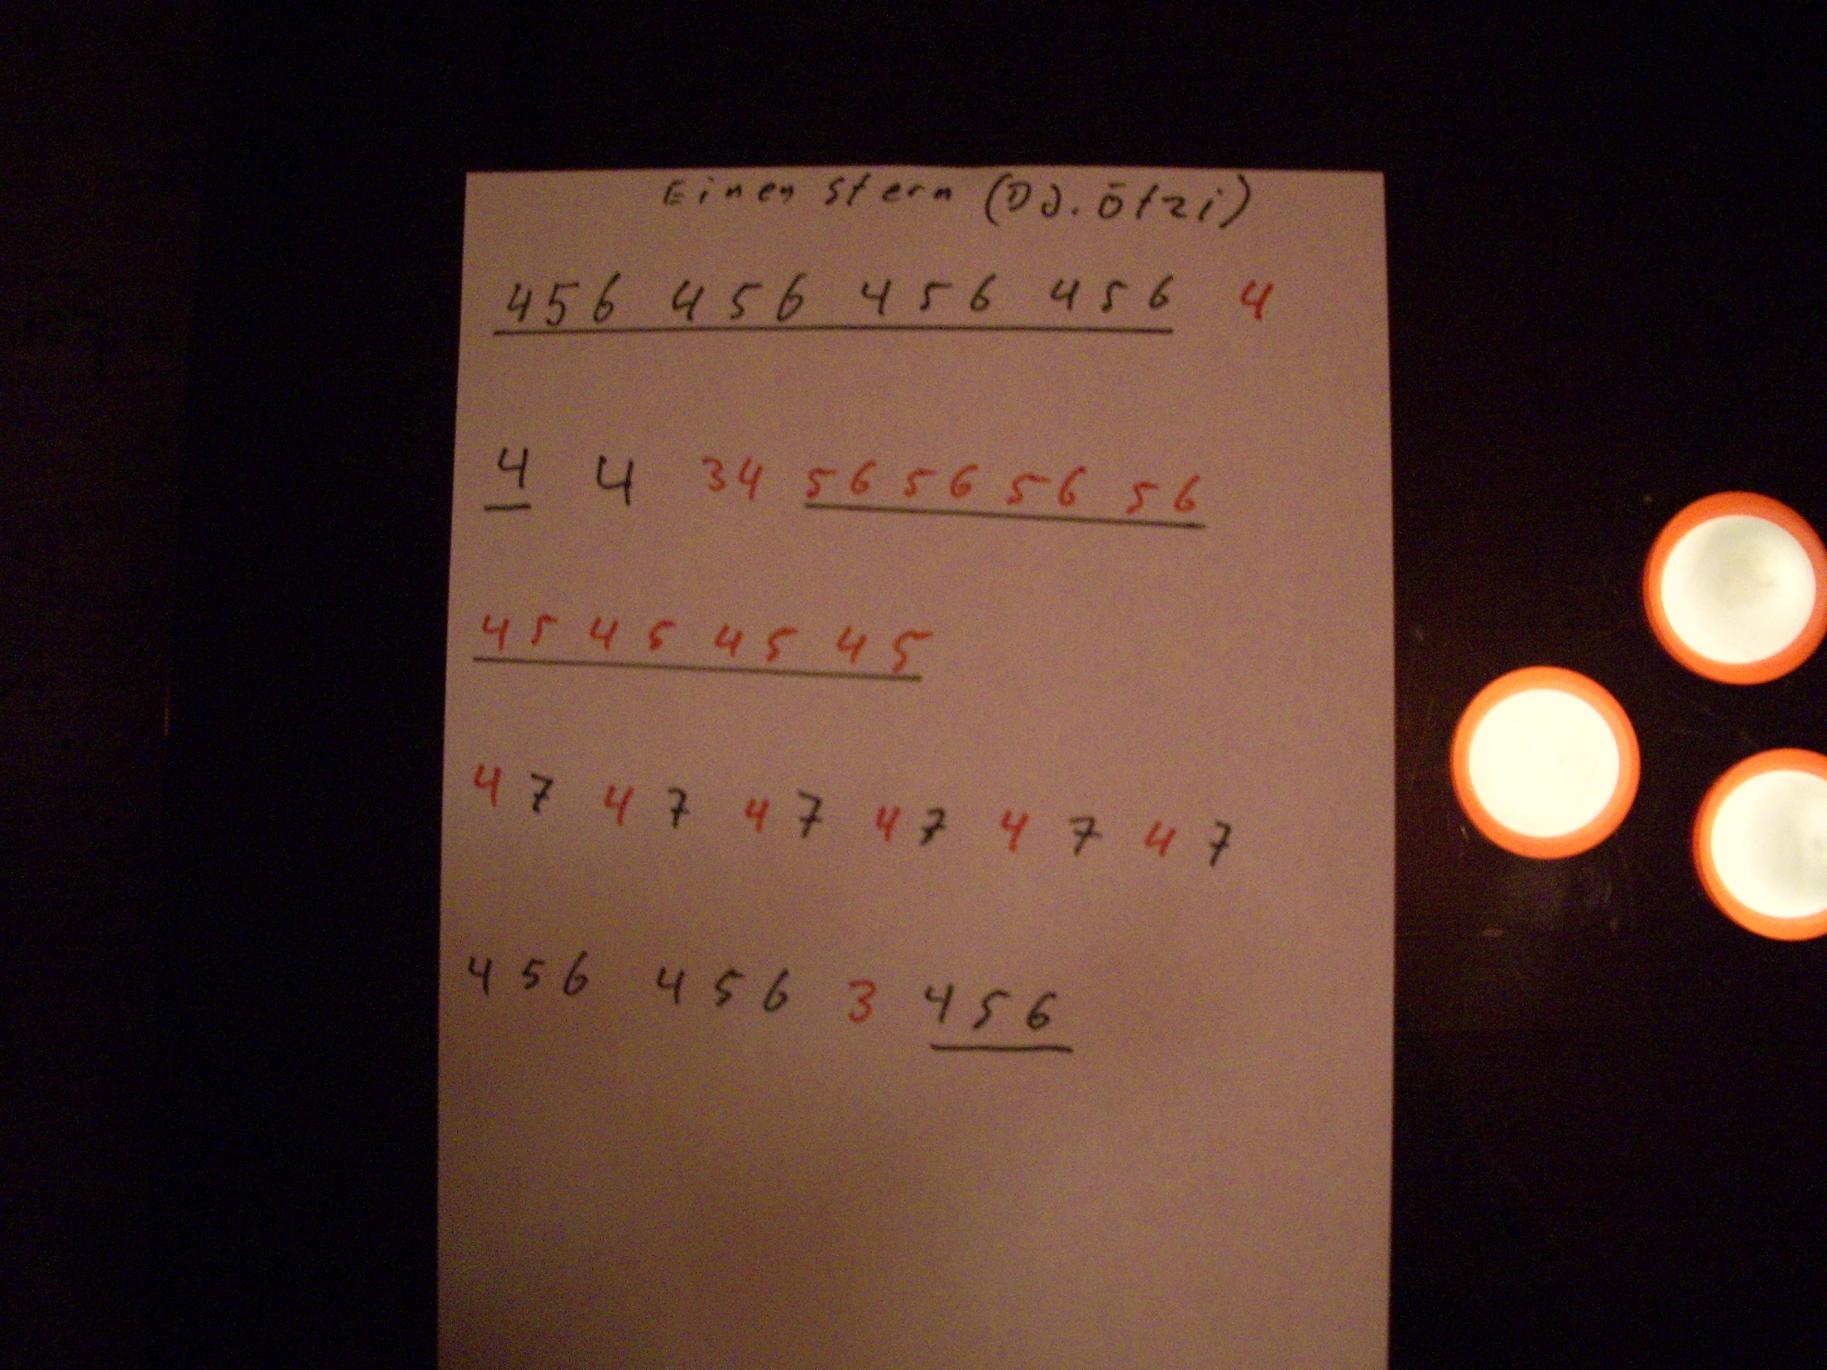 Einen Stern (DJ. Ötzi)
456 456 456 456 4
4 4 34 56 56 56 56
45 45 45 45
47 47 47 47 47 47
456 456 3 456